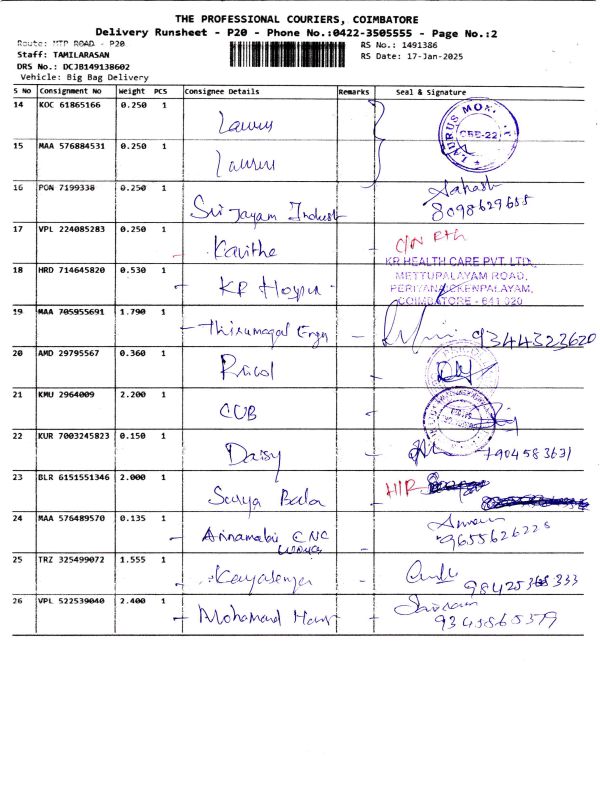 THE PROFESSIONAL COURIERS, COIMBATORE
Delivery Runsheet - P20 - Phone No.:0422-3505555 - Page No.:2
Route: MTP ROAD - P20
RS No.: 1491386
Staff: TAMILARASAN
RS Date: 17-Jan-2025
DRS No.: DCJB149138602
Vehicle: Big Bag Delivery
S No Consignment No Weight PCS Consignee Details Remarks Seal & Signature
14 KOC 61865166 0.250 1 Laurus
LAURUS CBE-22
15 MAA 576884531 0.250 1 Laurus
16 PON 7199338 0.250 1 Sri Jayam Indust
8098629655
17 VPL 224085283 0.250 1 Kavitha
18 HRD 714645820 0.530 1 KR
KR HEALTH CARE PVT. LTD.,
METTUPALAYAM ROAD,
COIMBATORE - 641 020
19 MAA 705955691 1.790 1 Thirumagal Engg 9344323620
20 AMD 29795567 0.360 1
21 KMU 2964009 2.200 1 CUB
22 KUR 7003245823 0.150 1 Daisy
23 BLR 6151551346 2.000 1 Surya Bala
24 MAA 576489570 0.135 1 Annamalai CNC
9655626225
25 TRZ 325499072 1.555 1
26 VPL 522539040 2.400 1 Mohamand